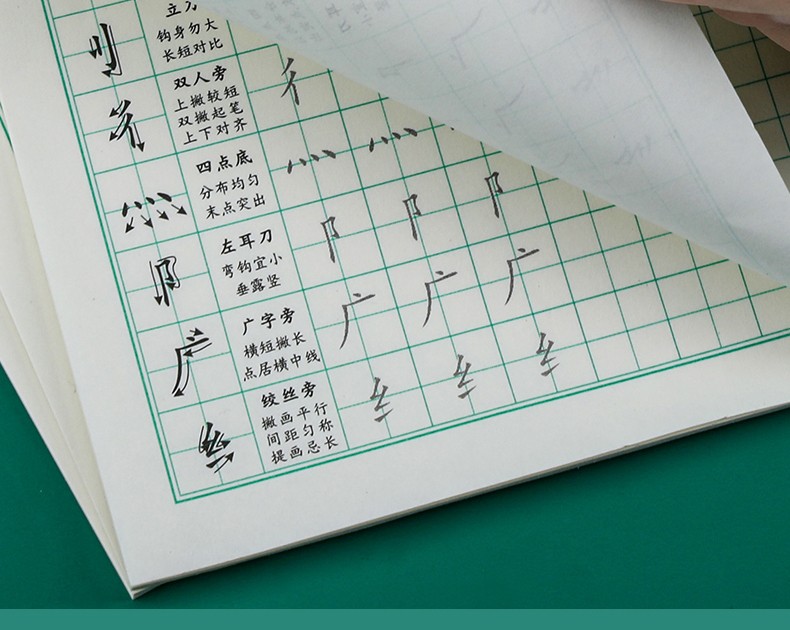 立刀
钩身勿大
长短对比
双人旁
上撇较短
双撇起笔
上下对齐
彳
四点底
分布均匀
末点突出
灬 灬
左耳刀
弯钩宜小
垂露竖
阝 阝 阝
广字旁
横短撇长
点居横中线
广 广 广
绞丝旁
撇画平行
间距匀称
提画忌长
纟 纟 纟